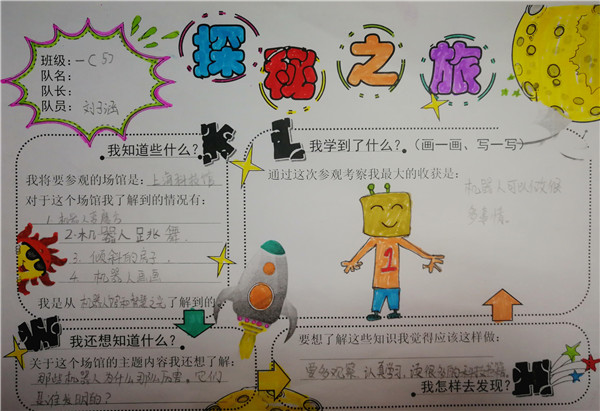 探秘之旅
班级：一(5)
队名：
队长：
队员：刘子涵
我知道些什么？
我将要参观的场馆是：上海科技馆
对于这个场馆我了解到的情况有：
1.机器人
2.机器人跳舞
3.倾斜的房子.
4.机器人画画
我是从 了解到的
我学到了什么？（画一画、写一写）
通过这次参观考察我最大的收获是：机器人可以做很
多事情。
1
我还想知道什么？
关于这个场馆的主题内容我还想了解：
那些机器人为什么那么厉害。它们
是谁发明的？
要想了解这些知识我觉得应该这样做：
要多观察 认真学习，读很多的科技书籍
我怎样去发现？